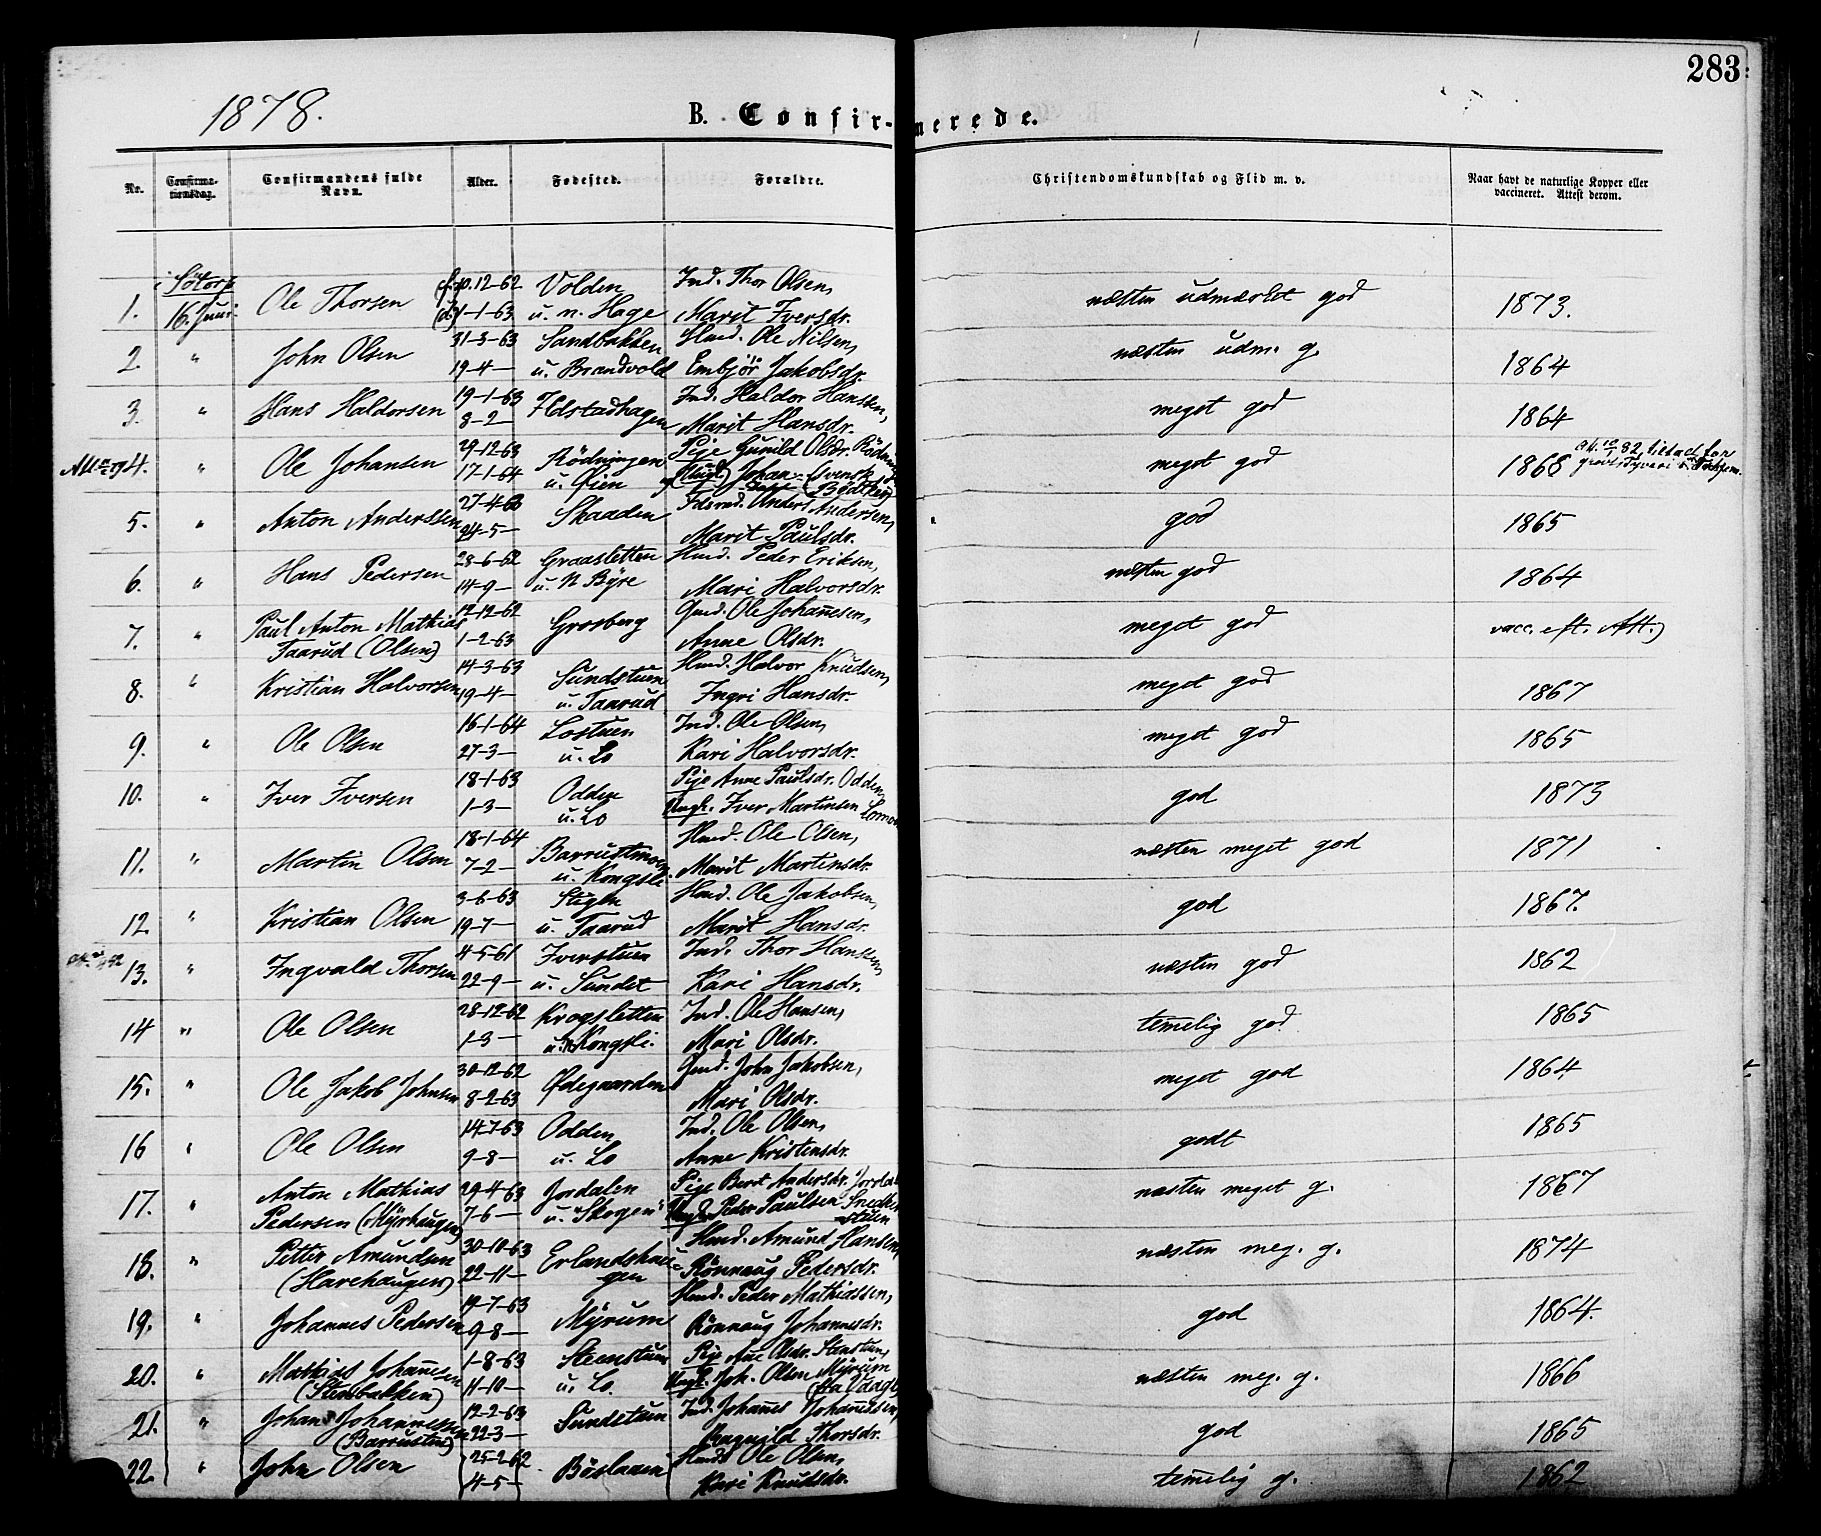 283
1878.
B. Confirmerede.
Nr. Confirmationsdag. Confirmandens fulde Navn. Alder. Fødested. Forældre. Christendomskundskab og Flid m. v. Naar havt de naturlige Kopper eller vaccineret. Attest derom.
i Sötorp (f.) 10.12-62 Volden Ind. Thor Olsen,
1. 16. Juni Ole Thorsen (d.) 1-1-63 u. n. Hage Marit Iversdr. næsten udmærket god 1873.
31-3-63 Sandbakken Husmd. Ole Nilsen,
2. " John Olsen 19-4- u. Brandvold Embjör Jakobsdr. næsten udm. g. 1864
19-1-63 Ind. Haldor Hanssen,
3. " Hans Haldorsen 8-2- Ildstadhagen Marit Hansdr. meget god 1864
29-12-63 Rödningen Pige Gunild Olsdr.
4. " Ole Johansen 17-1-64 u. Øien (Ungk.) Johan meget god 1868
27-4-63 Anders Andersen,
5. " Anton Anderssen 24-5- Skaaden Marit Paulsdr. god 1865
28-6-62 Graasletten Husmd. Peder Eriksen,
6. " Hans Pedersen 14-9- u. N Byre Mari Halvorsdr. næsten god 1864
12-12-62 Gmd. Ole Johannesen,
7. " Paul Anton Mathias 1-2-63 Grosberg Anne Olsdr. meget god vacc. eft. Att.
Taarud (Olsen)
14-3-63 Sundstuen Husmd. Halvor Knudsen,
8. " Kristian Halvorsen 19-4- u. Taarud Ingri Hansdr. meget god 1867
16-1-64 Lostuen Ind. Ole Olsen,
9. " Ole Olsen 27-3- u. Lo Kari Halvorsdr. meget god 1865
18-1-63 Odden Pige Anne Paulsdr. Odden,
10. " Iver Iversen 1-3- u. Lo Ungk. Iver Martinsen god 1873
18-1-64 Husmd. Ole Olsen,
11. " Martin Olsen 7-2- Barrustmoen u. Kongsli Marit Martinsdr. næsten meget god 1871
3-6-63 Stigen Husmd. Ole Jakobsen,
12. " Kristian Olsen 19-7- u. Taarud Marit Hansdr. god 1867.
4-5-61 Iverstuen Ind. Thor Hanssen,
13. " Ingvald Thorsen 22-9- u. Sundet Kari Hansdr. næsten god 1862
28-12-62 Krogsletten Ind. Ole Hansen,
14 " Ole Olsen 1-3- u. N Kongsli. Mari Olsdr. temelig god 1865
30-12-62 Gmd. John Jakobsen,
15. " Ole Jakob Johnsen 8-2-63 Ødegaarden Mari Olsdr. meget god 1864
14-7-63 Odden Ind. Ole Olsen,
16 " Ole Olsen 9-8- u. Lo Anne Kristensdr. godt 1865
Anton Mathias 29-4-63 Jordalen Pige Berit Andersdr. Jordal
17. " Pedersen (Myrhaugen) 7-6- u. "Skogen" Ungk. Peder Paulsen Snedkerstuen næsten meget g. 1867
Petter Amundsen 30-10-63 Husmd. Amund Hansen,
18. " (Harehaugen) 22-11- Erlandshaugen Rönnaug Pedersdr. næsten meg. g. 1874
19-7-63 Husmd. Peder Mathiassen,
19. " Johannes Pedersen 9-8- Myrum Rönnaug Johannesdr. god 1864.
Mathias Johannesen 1-8-63 Steenstuen Pige Olsdr. Stenstuen,
20. " (Stenbakken) 11-10- u. Lo. Ungk. Joh. Olsen Myrum næsten meg. g. 1866
Johan Johannessen 12-2-63 Ind. Johannes Johannessen,
21. " (Barrusten) 22-3- Sundstuen Ragnild Thorsdr. god 1865
25-2-62 Husmd. Ole Olsen,
22. " John Olsen 4-5- Kari Knudsdr. temelig g. 1862